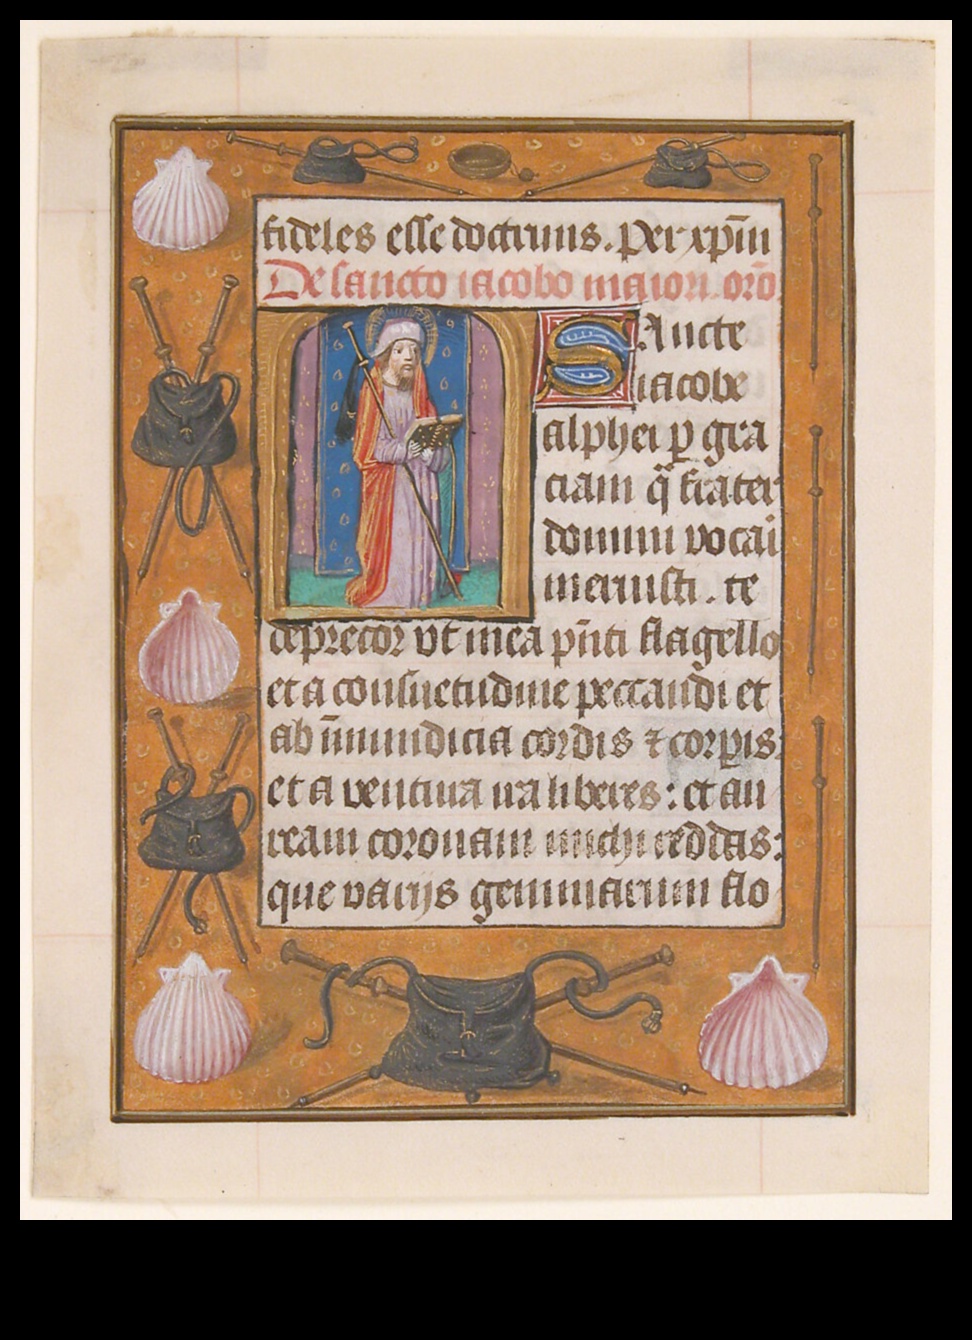 fideles esse doctrinis. Per xp̄m
De sancto iacobo maiori. orō.
Sancte
iacobe
alphei ꝑ gra
ciam q̄ frater
domini vocai
meruisti. te
deprecor vt mea pn̄ti flagello
et a consuetudine peccandi et
ab īmundicia cordis ⁊ corꝑis:
et a ventura ira liberes: et au
ream coronam michi reddas:
que varijs gemmarum flo